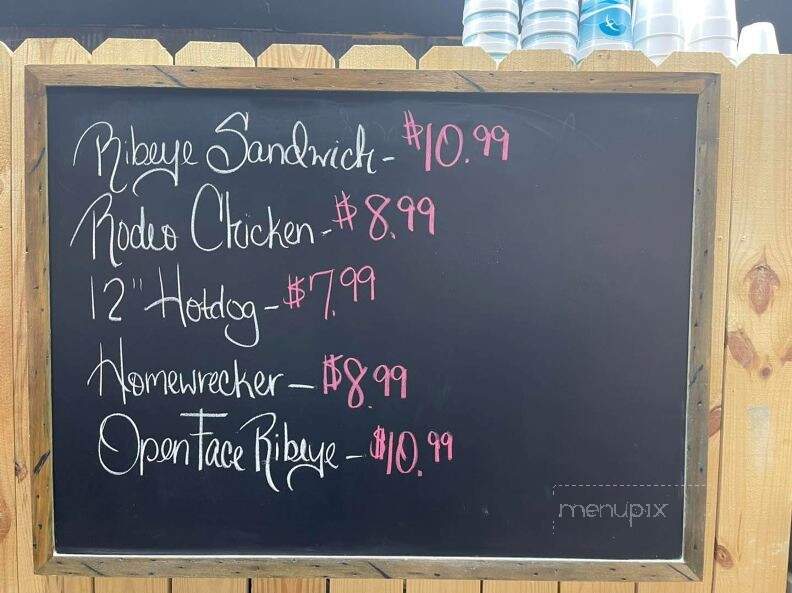 Ribeye Sandwich - $10.99
Rodeo Chicken - $8.99
12" Hotdog - $7.99
Homewrecker - $8.99
Open Face Ribeye - $10.99
menupix